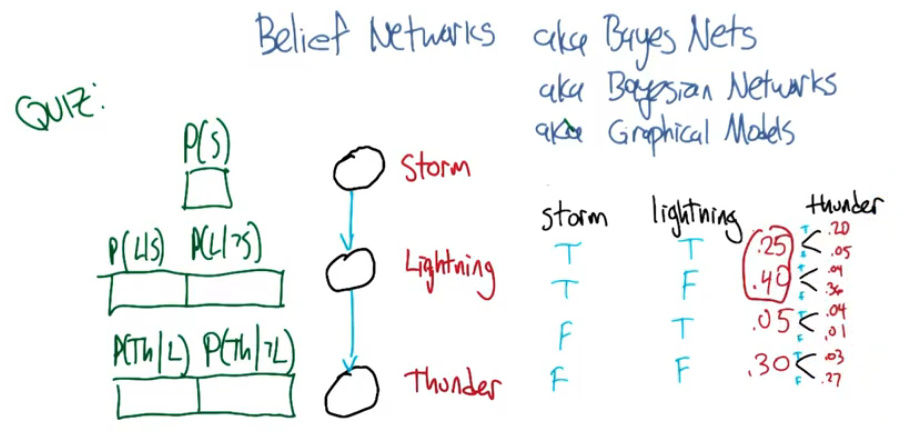 Belief Networks aka Bayes Nets
aka Bayesian Networks
aka Graphical Models
QUIZ:
P(S)
P(L|S) P(L|¬S)
P(Th|L) P(Th|¬L)
Storm
Lightning
Thunder
storm lightning thunder
T T .25 < T .20
F .05
T F .40 < T .04
F .36
F T .05 < T .04
F .01
F F .30 < T .03
F .27